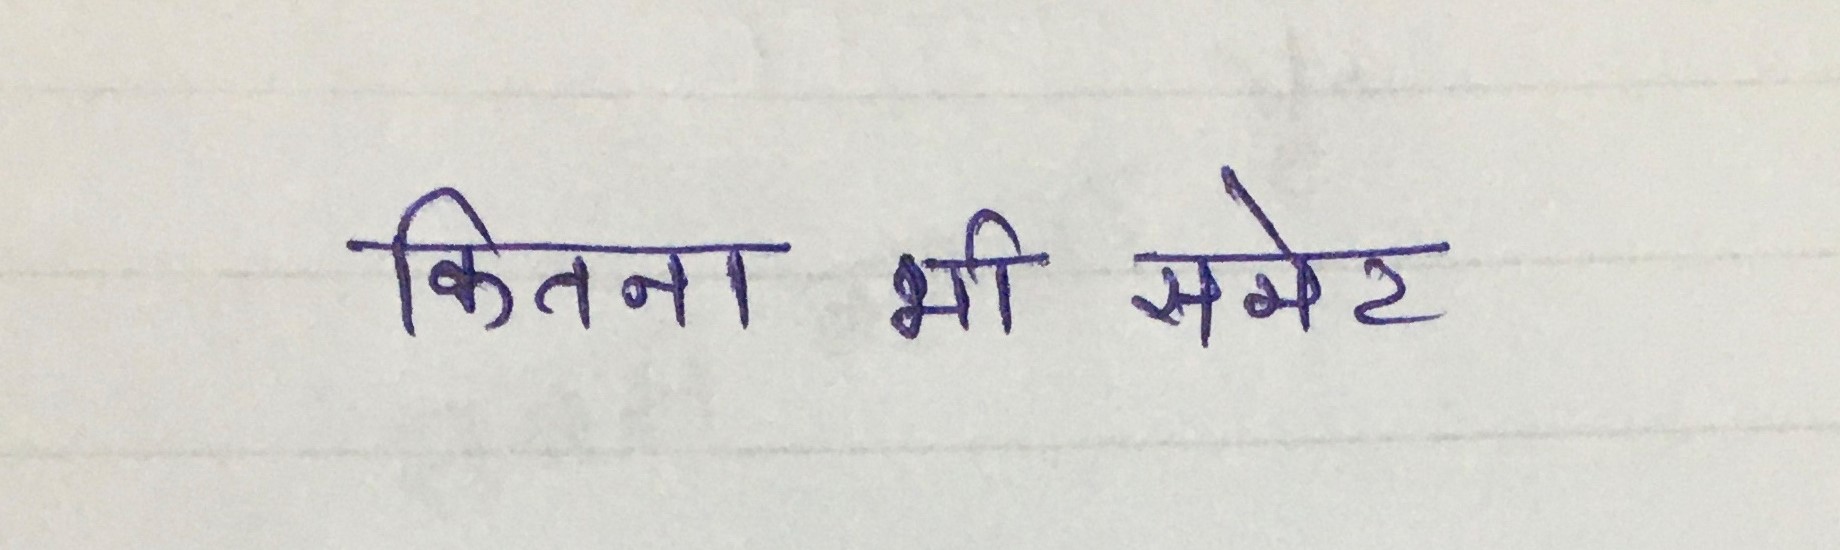 कितना भी समेट